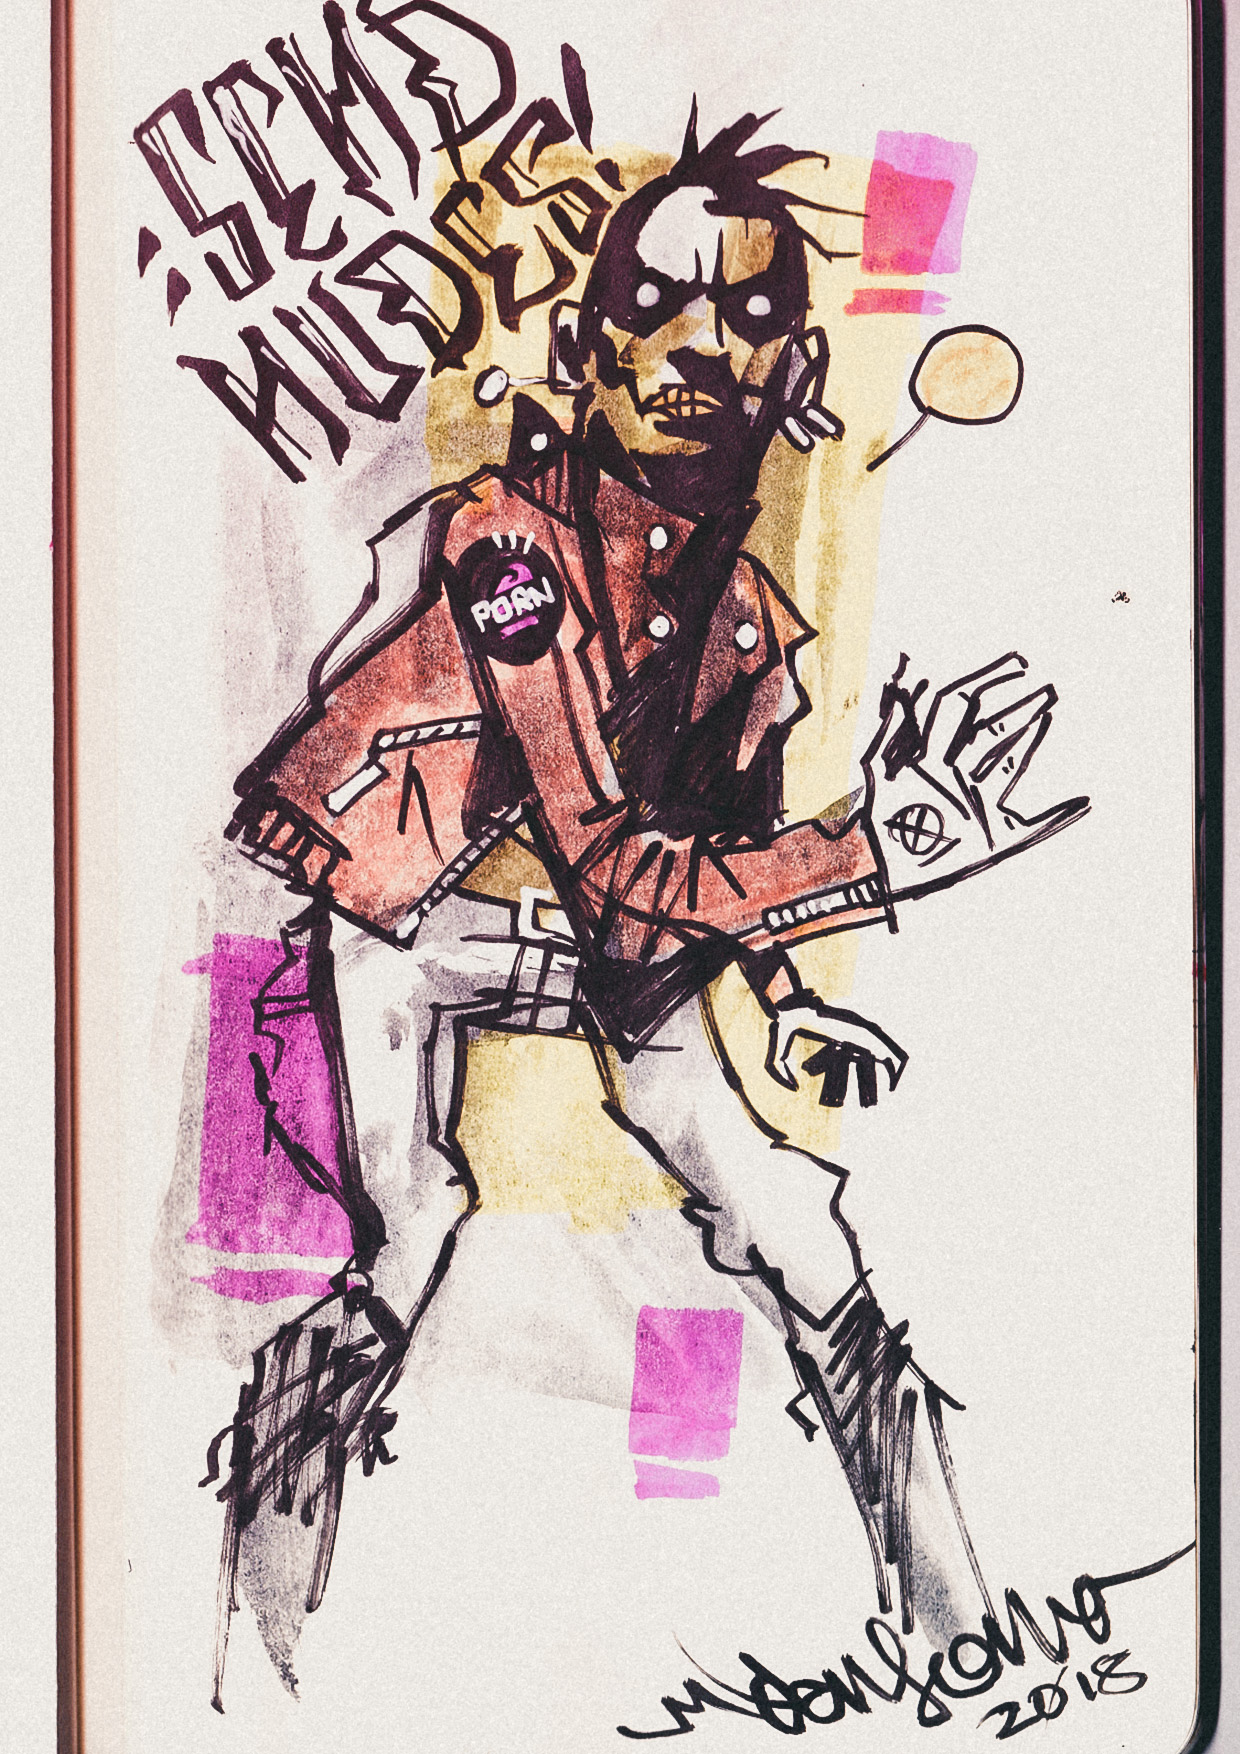 ¡SEND
NUDES!
PORN
2018